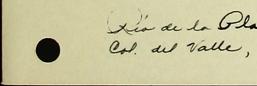 Río de la Pla
Col. del Valle,